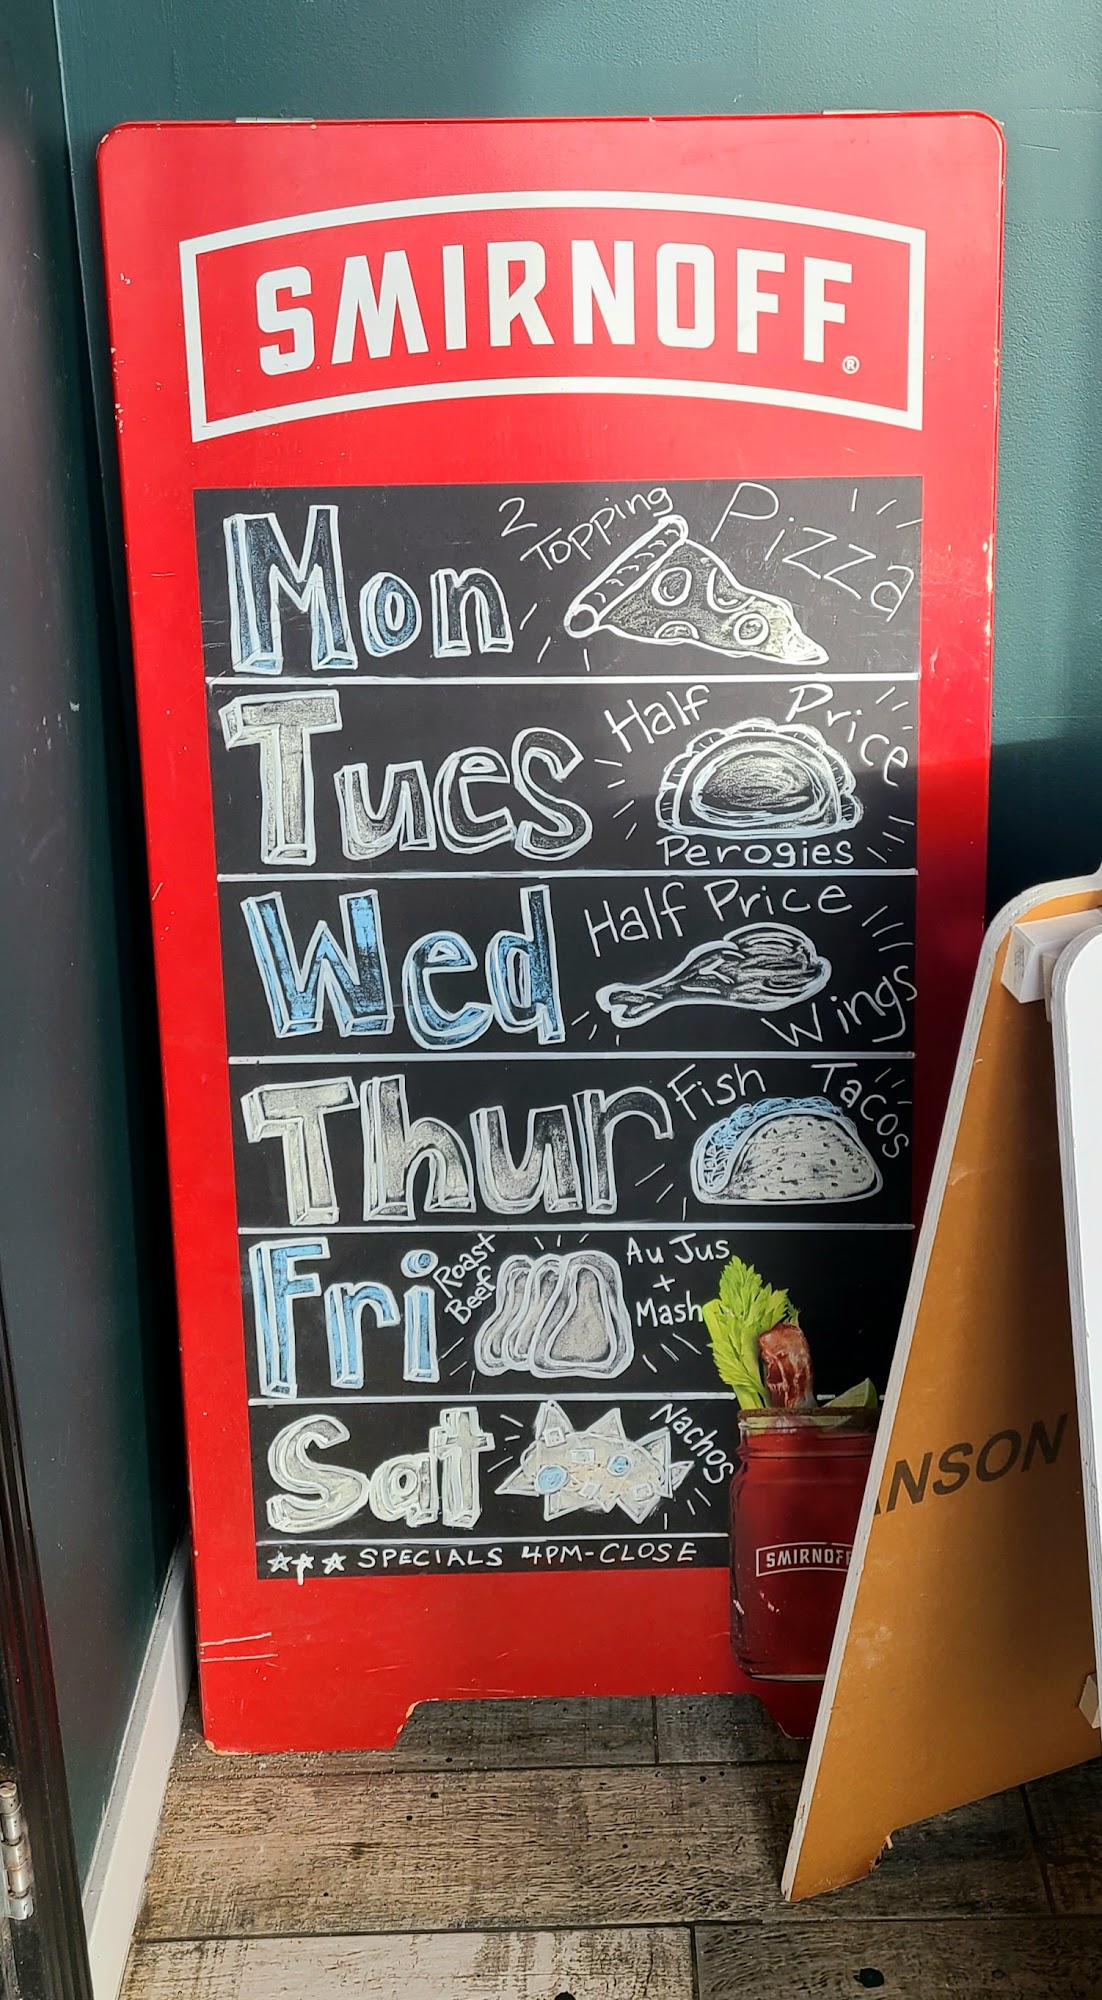 SMIRNOFF®
Mon
2
Topping
Pizza
Tues
Half Price
Perogies
Wed
Half Price
Wings
Thur
Fish Tacos
Fri
Roast
Beef
Au Jus
+
Mash
Sat
Nachos
SPECIALS 4PM-CLOSE
SMIRNOFF
ANSON